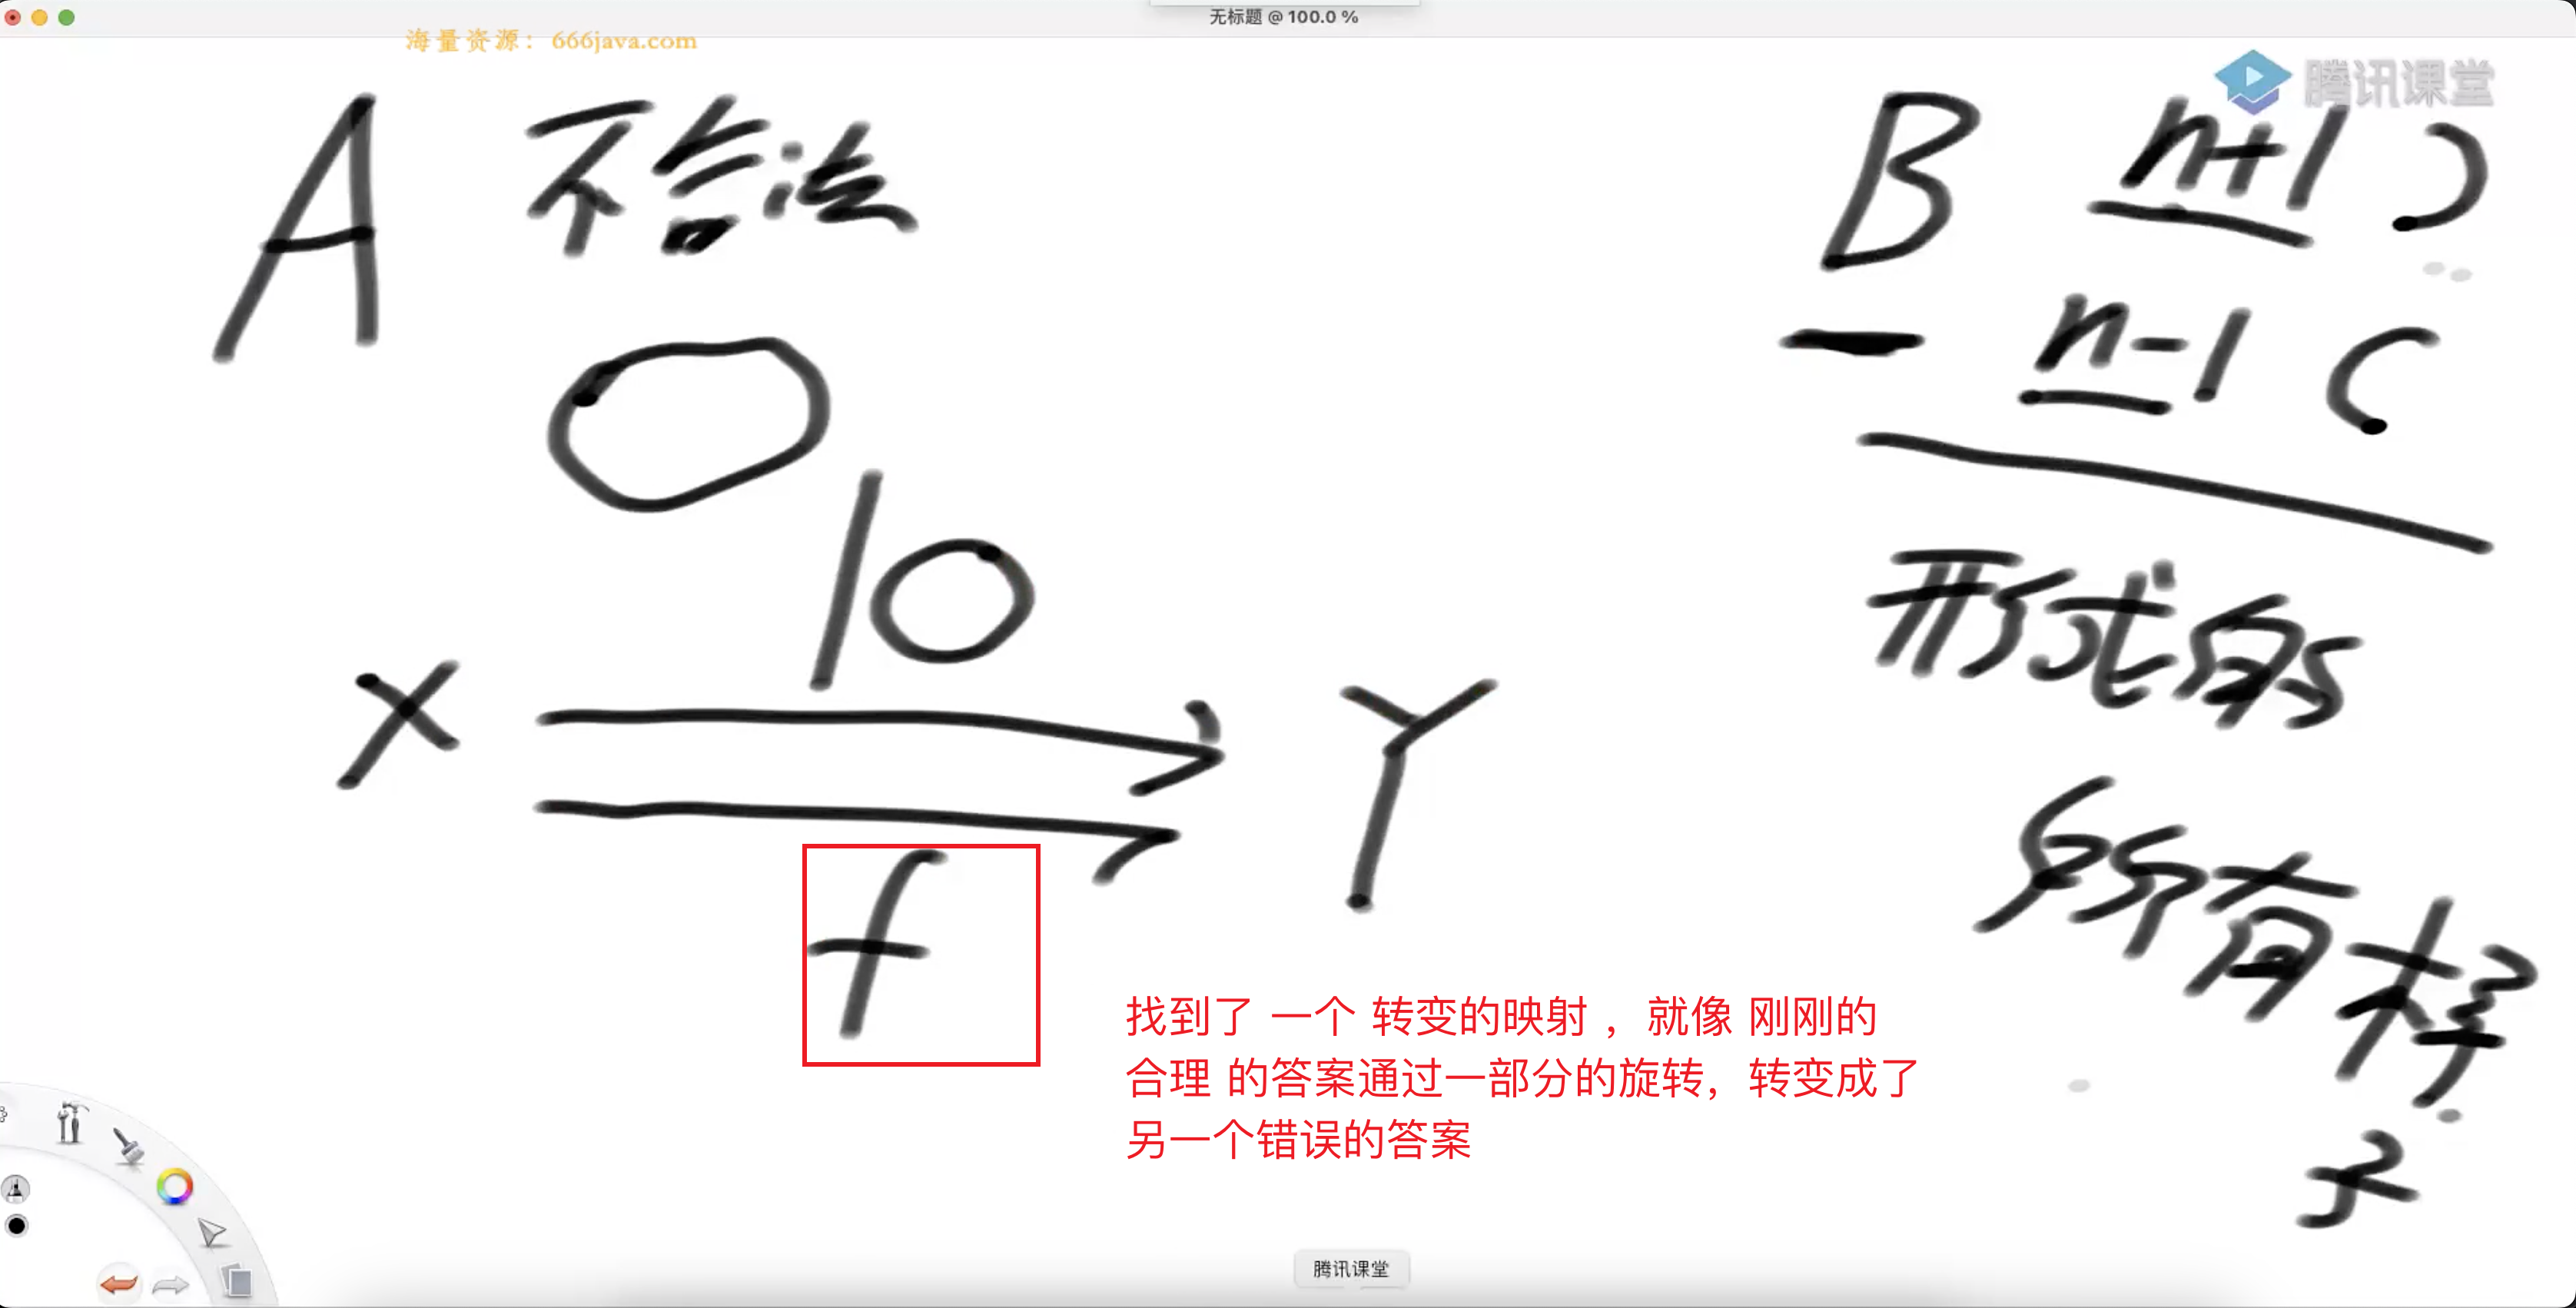 无标题 @ 100.0 %
海量资源：666java.com
腾讯课堂
A 不合法
B n+1 )
- n-1 (
形式的
所有样
子
10
X Y
f
找到了 一个 转变的映射 ，就像 刚刚的
合理 的答案通过一部分的旋转，转变成了
另一个错误的答案
腾讯课堂